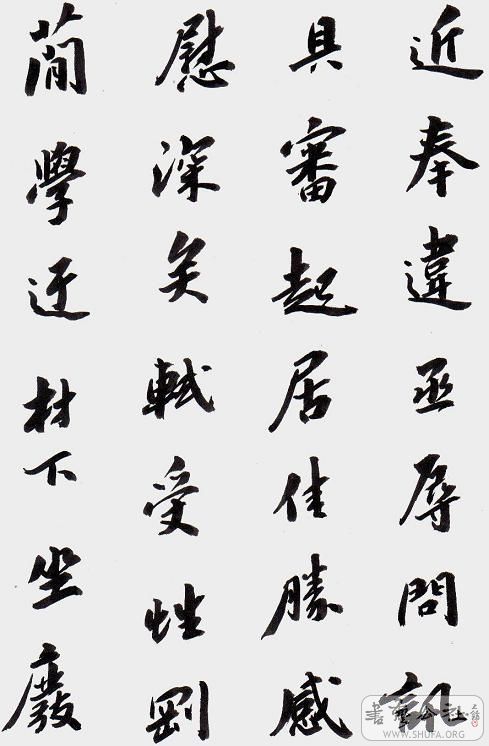 近奉違亟辱問訊
具審起居佳勝感
慰深矣軾受性剛
簡學迂材下坐廢
WWW.SHUFA.ORG